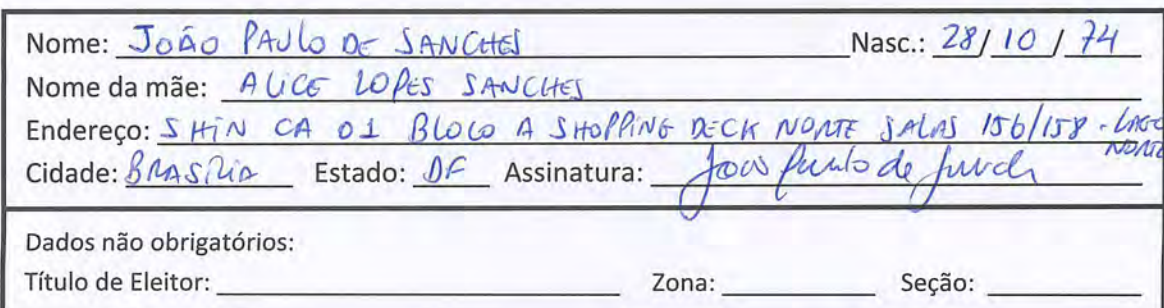 Nome: JOÃO PAULO DE SANCHES Nasc.: 28/10/74
Nome da mãe: ALICE LOPES SANCHES
Endereço: SHIN CA 01 BLOCO A SHOPPING DECK NORTE SALAS 156/158 - LAGO NORTE
Cidade: BRASÍLIA Estado: DF Assinatura: João Paulo de Sanch
Dados não obrigatórios:
Título de Eleitor: Zona: Seção: